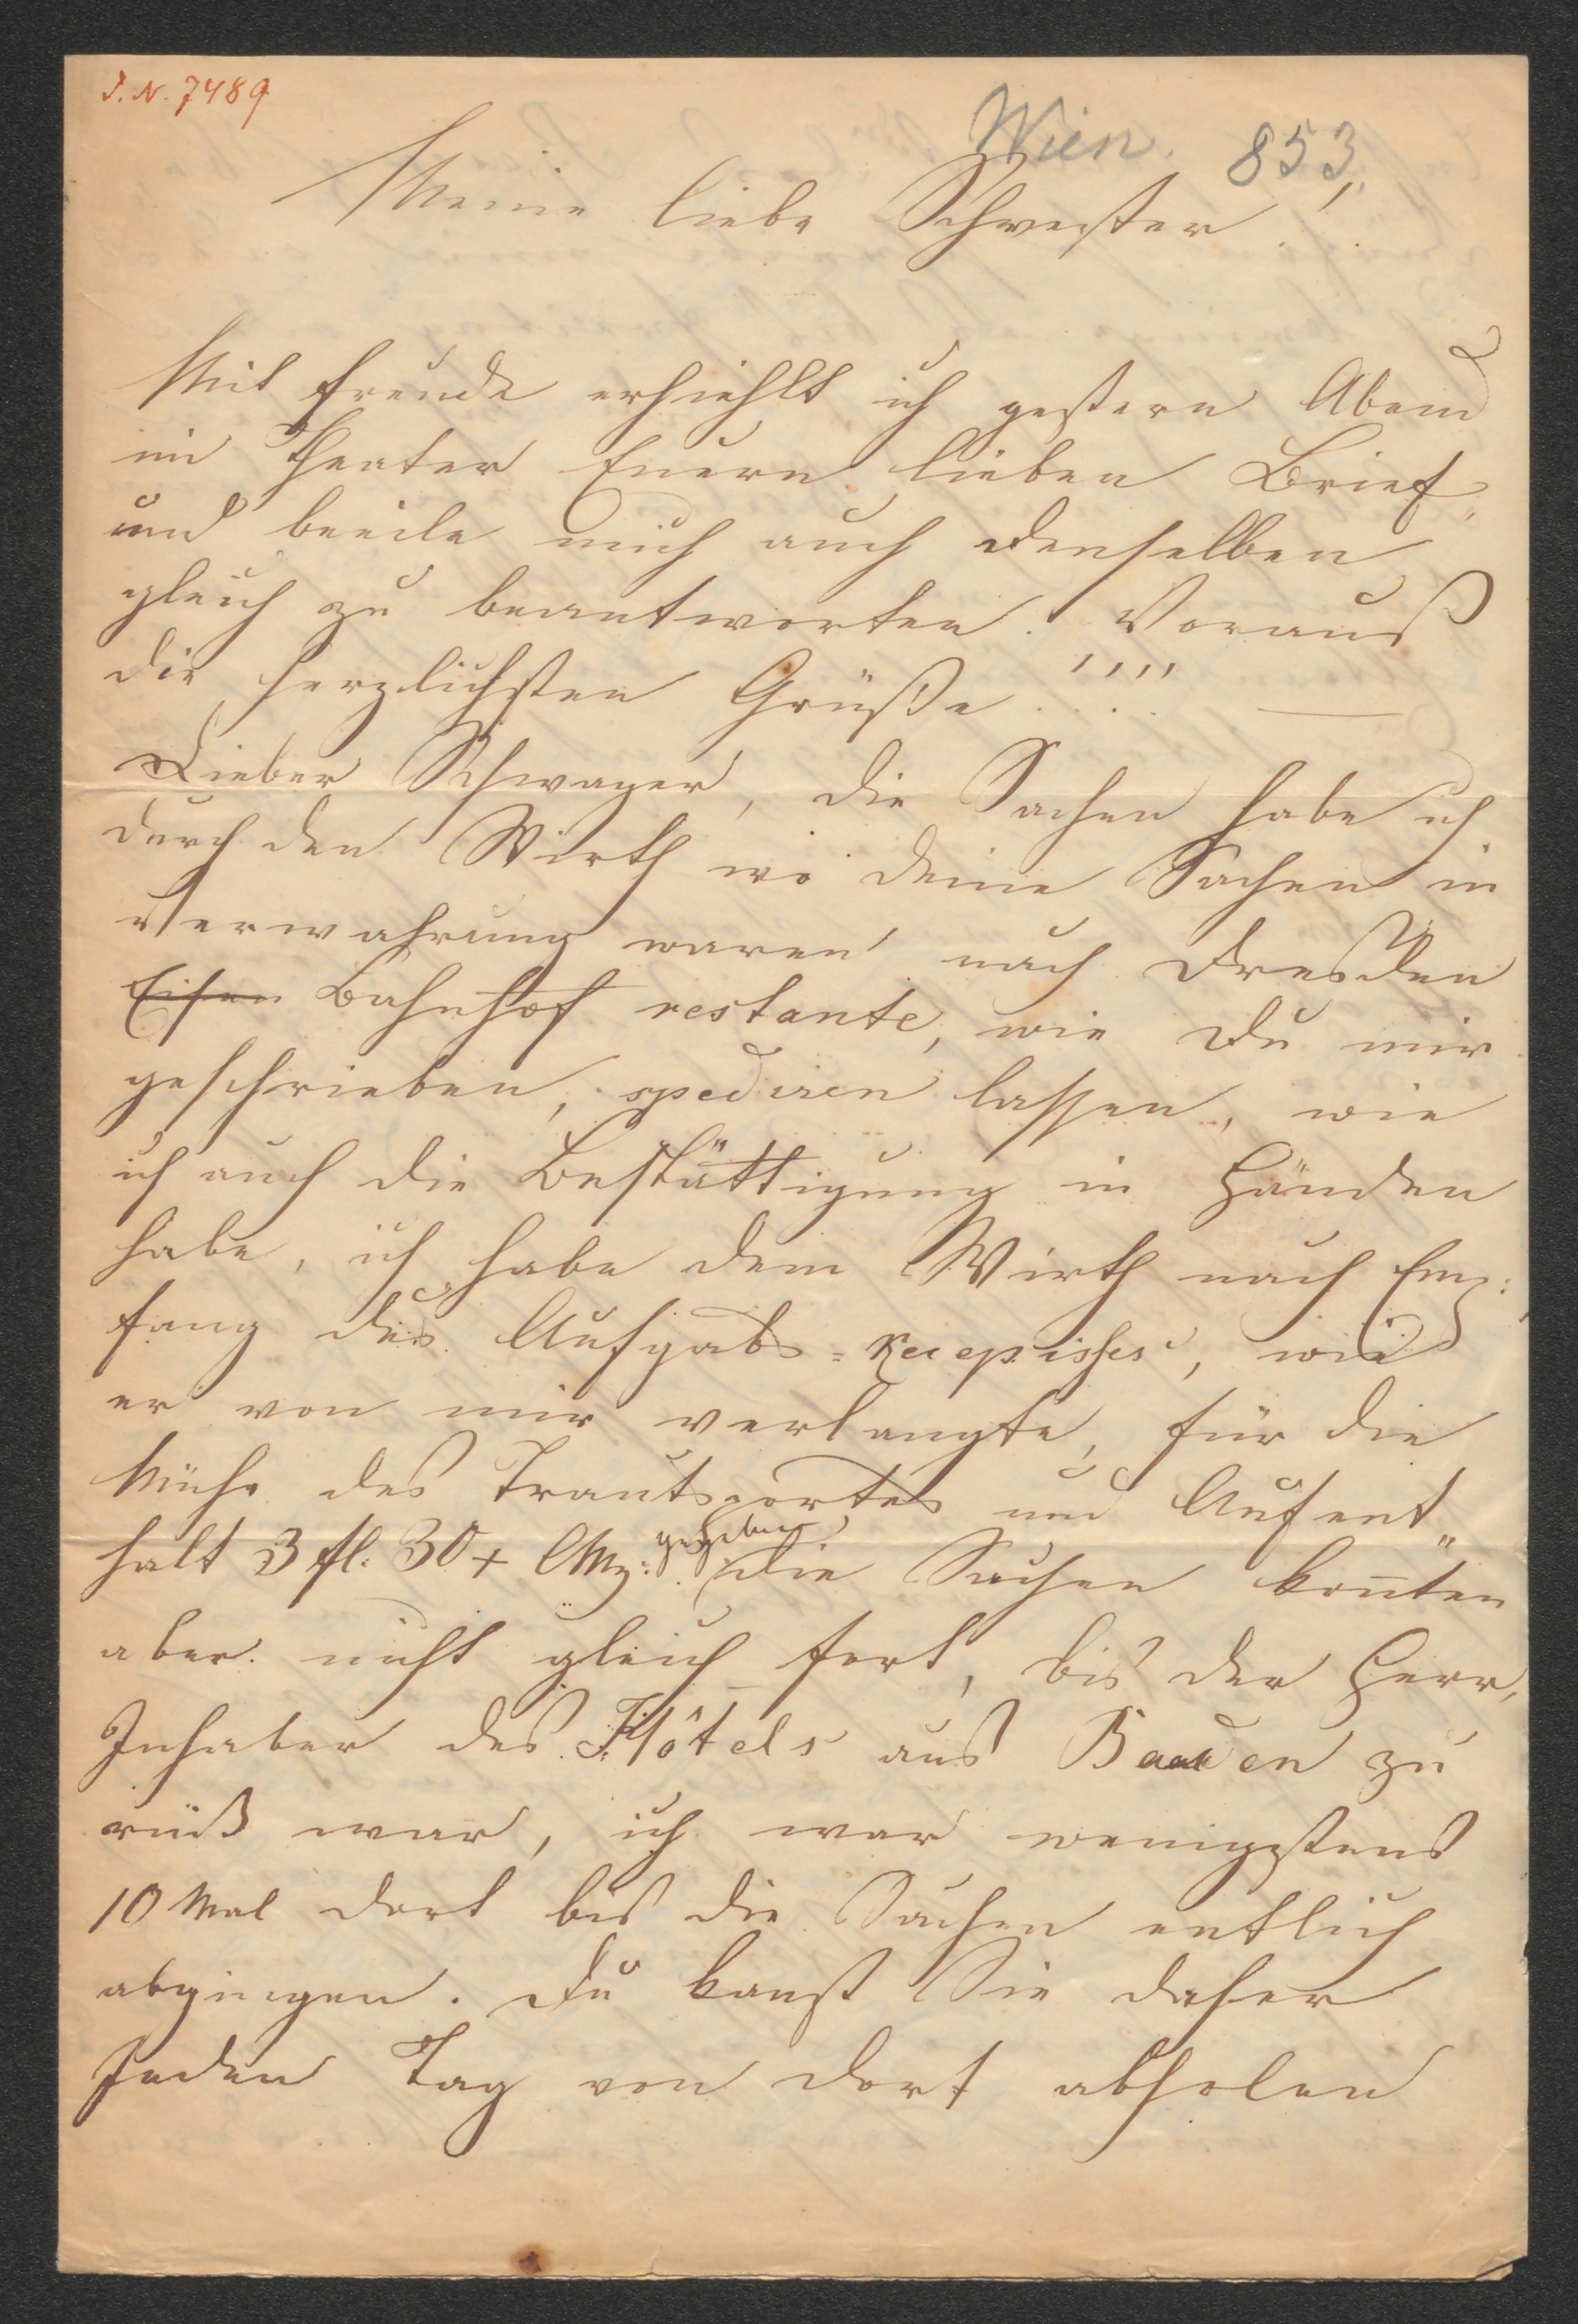 I. N. 7489
Wien. 853
Meine liebe Schwester!!
Mit Freude erhiehlt ich gestern Abend
im Theater Euern lieben Brief,
und beeile mich auch denselben
gleich zu beantworten. Vorauß
die herzlichsten Grüße!!!! —
Lieber Schwager, die Sachen habe ich
durch den Wirth wo deine Sachen in
Verwahrung waren nach Dresden
Eisen Bahnhof restante, wie Du mir
geschrieben, spediren lassen, wie
ich auch die Bestättigung in Händen
habe, ich habe dem Wirth nach Em¬
fang des Aufgabs=Recepisses, wie
er von mir verlangte, für die
Mühe des Trantsportes und Aufent„
halt 3 fl. 30 x CMz: gegeben, die Sachen kon̄ten
aber nicht gleich fort, bis der Herr,
Inhaber des Hôtels aus Baaden zu
rück war, ich war wenigstens
10 Mal dort bis die Sachen entlich
abgingen. Du kanst Sie daher
Jeden Tag von dort abholen